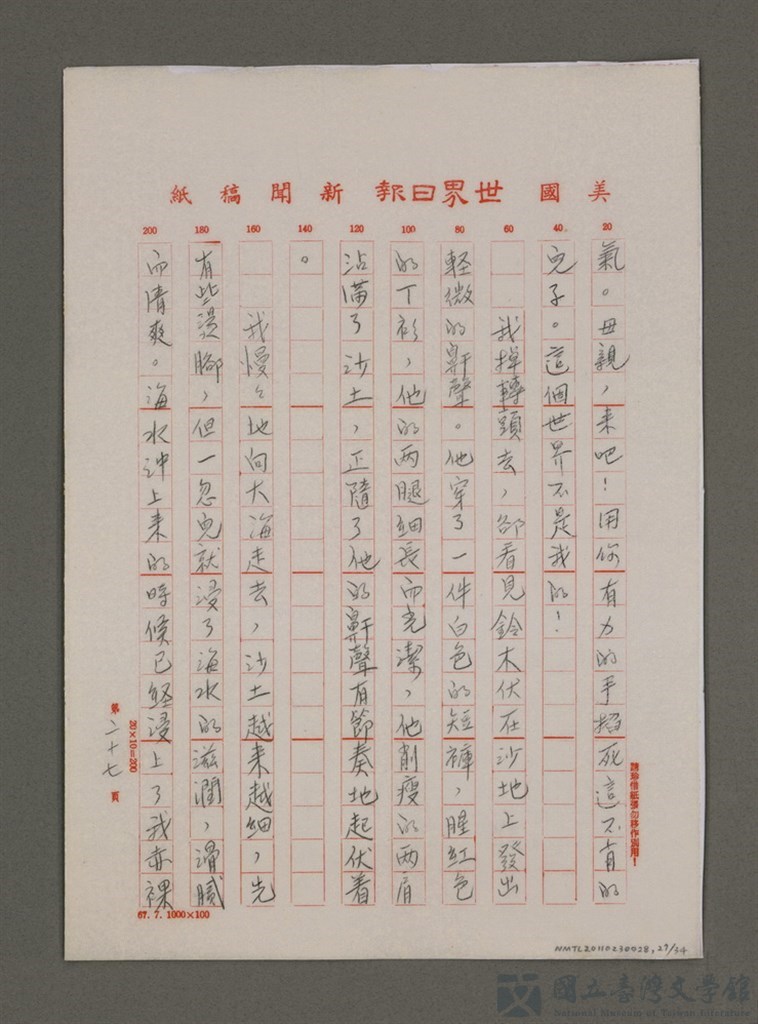 美國世界日報新聞稿紙
20
40
60
80
100
120
140
160
180
200
氣。母親，来吧！用你有力的手掐死這不肖的
兒子。這個世界不是我的！
我掉轉頭去，卻看見鈴木伏在沙地上發出
輕微的鼾聲。他穿了一件白色的短褲，腥紅色
的丁衫，他的两腿細長而光潔，他削瘦的两肩
沾滿了沙土，正隨了他的鼾聲有節奏地起伏着
。
我慢々地向大海走去，沙土越来越細，先
有些燙腳，但一忽兒就浸了海水的滋潤，滑膩
而清爽。海水沖上来的時候已經浸上了我赤裸
請珍惜紙張勿移作別用！
20×10=200
第二十七頁
67.7.1000×100
NMTL20110230028, 27/34
國立臺灣文學館
National Museum of Taiwan Literature